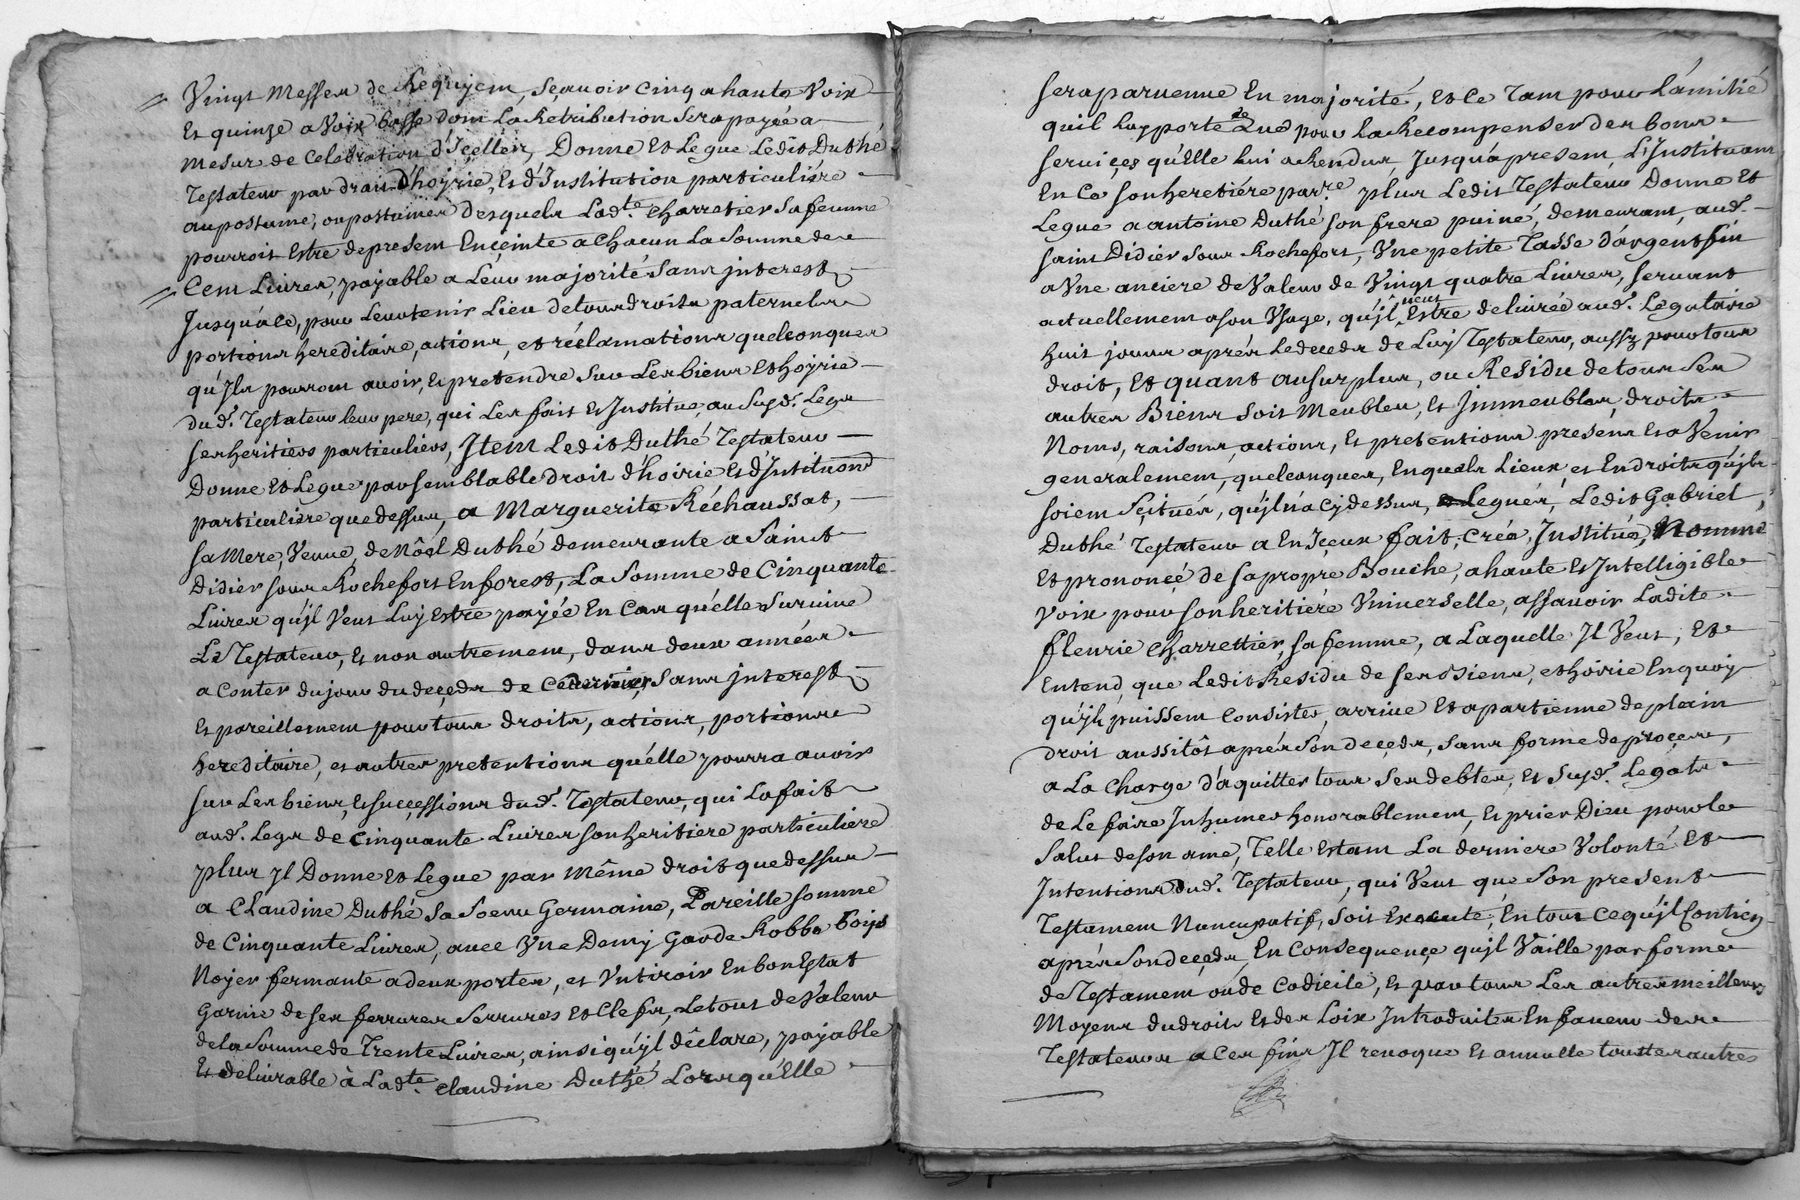 Vingt Messes de Requiem, sçavoir cinq a haute voix
Et quinze a voix basse dont La Retribution sera payée a
mesur de Celebration d'Içelles, Donne Et Legue Ledit Duthé
Testateur par droit d'hoirie, Et d'Institution particuliére
au postume, ou postumes desquels Ladte. Charretier sa femme
pourroit Estre de present Enceinte a Chacun La Somme de
Cent Livres, payable a Leur majorité sans jnterest
Jusqu'a ce, pour Leur tenir Lieu de tous droits paternels
portions hereditaire, actions, et réclamations quelconques
qu'Jls pourront avoir, Et pretendre sur Les biens Et hoyrie
dud. Testateur leur pere, qui Les fait Et Institue, au susd. Legs
ses heritiers particuliers, Jtem Ledit Duthé Testateur
Donne Et Legue par semblable droit d'hoirie Et d'Intituõn
particuliére que dessus, a Marguerite Réchaussat,
sa Mere, Veuve de Nôël Duthé demeurante a Saint
Didier sous Rochefort En forest, La Somme de Cinquante
Livres qu'jl Veut Luy Estre payée En Cas qu'elle survive
Le Testateur, Et non autrement, dans deux années
a Conter du jour du deçeds de Ce dernier, sans jnterest
Et pareillement pour tous droits, actions, portions
hereditaire, et autres pretentions qu'elle pourra avoir
sur Les biens, Et suççessions dud. Testateur, qui La fait
aud. Legs de Cinquante Livres son heritiere particuliere
plus Jl Donne Et Legue par même droit que dessus
a Claudine Duthé sa Soeur Germaine, Pareille somme
de Cinquante Livres, avec Une Demy Garde Robbe boys
Noyer fermante a deux portes, et Un tiroir En bon Estat
Garnie de ses ferrures Serrures Et Clefs, Le tout de Valeur
de la Somme de Trente Livres, ainsi qu'jl dêclare, payable
Et delivrable à Ladte. Claudine Duthé Lorsqu'Elle
sera parvenue En majorité, Et Ce Tant pour L'amitié
quil Luy porte que pour La Recompenser des bons
serviçes qu'Elle Lui a Rendus Jusqu'a present L'Instituant
En Ce son heretiére parre. plus Ledit Testateur Donne Et
Legue a antoine Duthé son frere puiné, demeurant, aud.
saint Didier sous Rochefort, Une petite Tasse d'argent fin
a Une anciere de Valeur de Vingt quatre Livres, servant
actuellement a son Usage, qu'jl veut Estre delivrée aud. Legataire
huit jours aprés Le deçeds de Luy Testateur, aussy pour tous
droit, Et quant au surplus, ou Residu de tous ses
autres Biens soit Meubles, Et Jmmeubles, droits
Noms, raisons, actions, Et pretentions presens Et a Venir
generalement, quelconques, En quels Lieux et Endroits qu'jls
soient Sçitués, qu'jl n'a cy dessus, Legués, Ledit Gabriel
Duthé Testateur a En Jçeux fait, Créé, Jnstitué, Nommé
Et prononçé de sa propre Bouche, a haute Et Jntelligible
Voix pour son heritiére Universelle, assavoir Ladite
fleurie Charrettier, sa femme, a Laquelle Jl Veut, Et
Entend que Ledit Residu de ses Biens, et hoirie En quoy
qu'jls puissent Consister, arrive Et apartienne de plein
droit aussitôt aprés son deçeds, sans forme de proçes,
a La Charge d'aquitter tous ses debtes, Et susd. Legats
de Le faire Jnhumer honorablement, Et prier Dieu pour le
Salut de son ame, Telle Estant La derniere Volonté Et
Jntentions dud. Testateur, qui Veut que son present
Testament Nuncupatif, soit Executé, En tout Ce qu'jl Contient
aprés son deçeds, En Consequençe qu'jl Vaille par forme
de Testament ou de Codicile, Et par tous Les autres meilleurs
Moyens du droit Et des Loix Jntroduites En faveur des
Testateurs a Ces fins Jl revoque Et annulle toutes autres